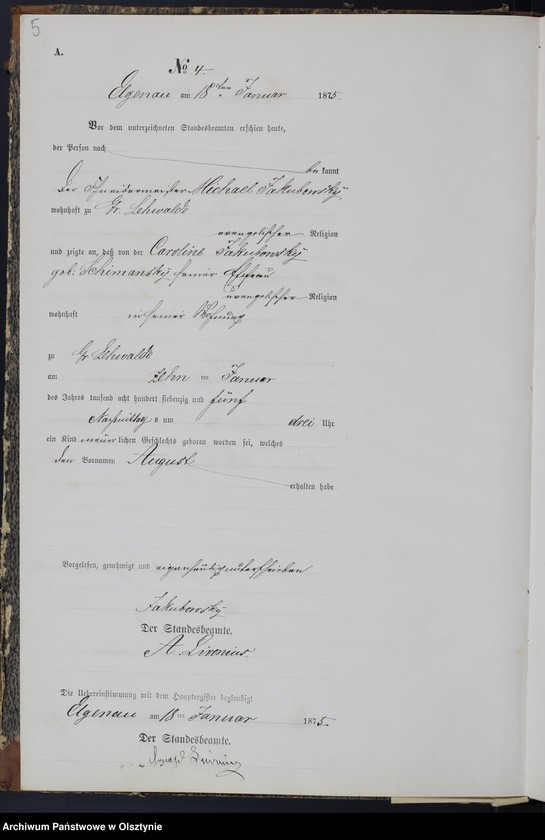 5
A.
№ 4.
Elgenau am 18ten Januar 1875.
Vor dem unterzeichneten Standesbeamten erschien heute,
der Person nach
be kannt
der Schneidermeister Michael Jakubowsky
wohnhaft zu Gr. Lehwalde
evangelischer Religion
und zeigte an, daß von der Caroline Jakubowsky
geb. Schimansky seiner Ehefrau
evangelischer Religion
wohnhaft in seiner Wohnung
zu Gr Lehwalde
am zehn ten Januar
des Jahres tausend acht hundert siebenzig und fünf
Nachmittag s um drei Uhr
ein Kind männ lichen Geschlechts geboren worden sei, welches
den Vornamen August
erhalten habe
Vorgelesen, genehmigt und eigenhändig unterschrieben
Jakubowsky
Der Standesbeamte.
A. Livonius.
Die Uebereinstimmung mit dem Hauptregister beglaubigt
Elgenau am 18 ten Januar 1875.
Der Standesbeamte.
Archiwum Państwowe w Olsztynie